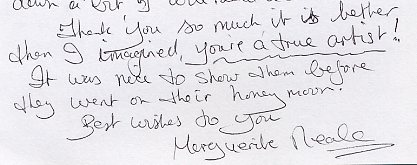 down a bit of
Thank you so much it is better
then I imagined, you're a true artist!
It was nice to show them before
they went on their honey moon.
Best wishes to you
Merguerite Neale